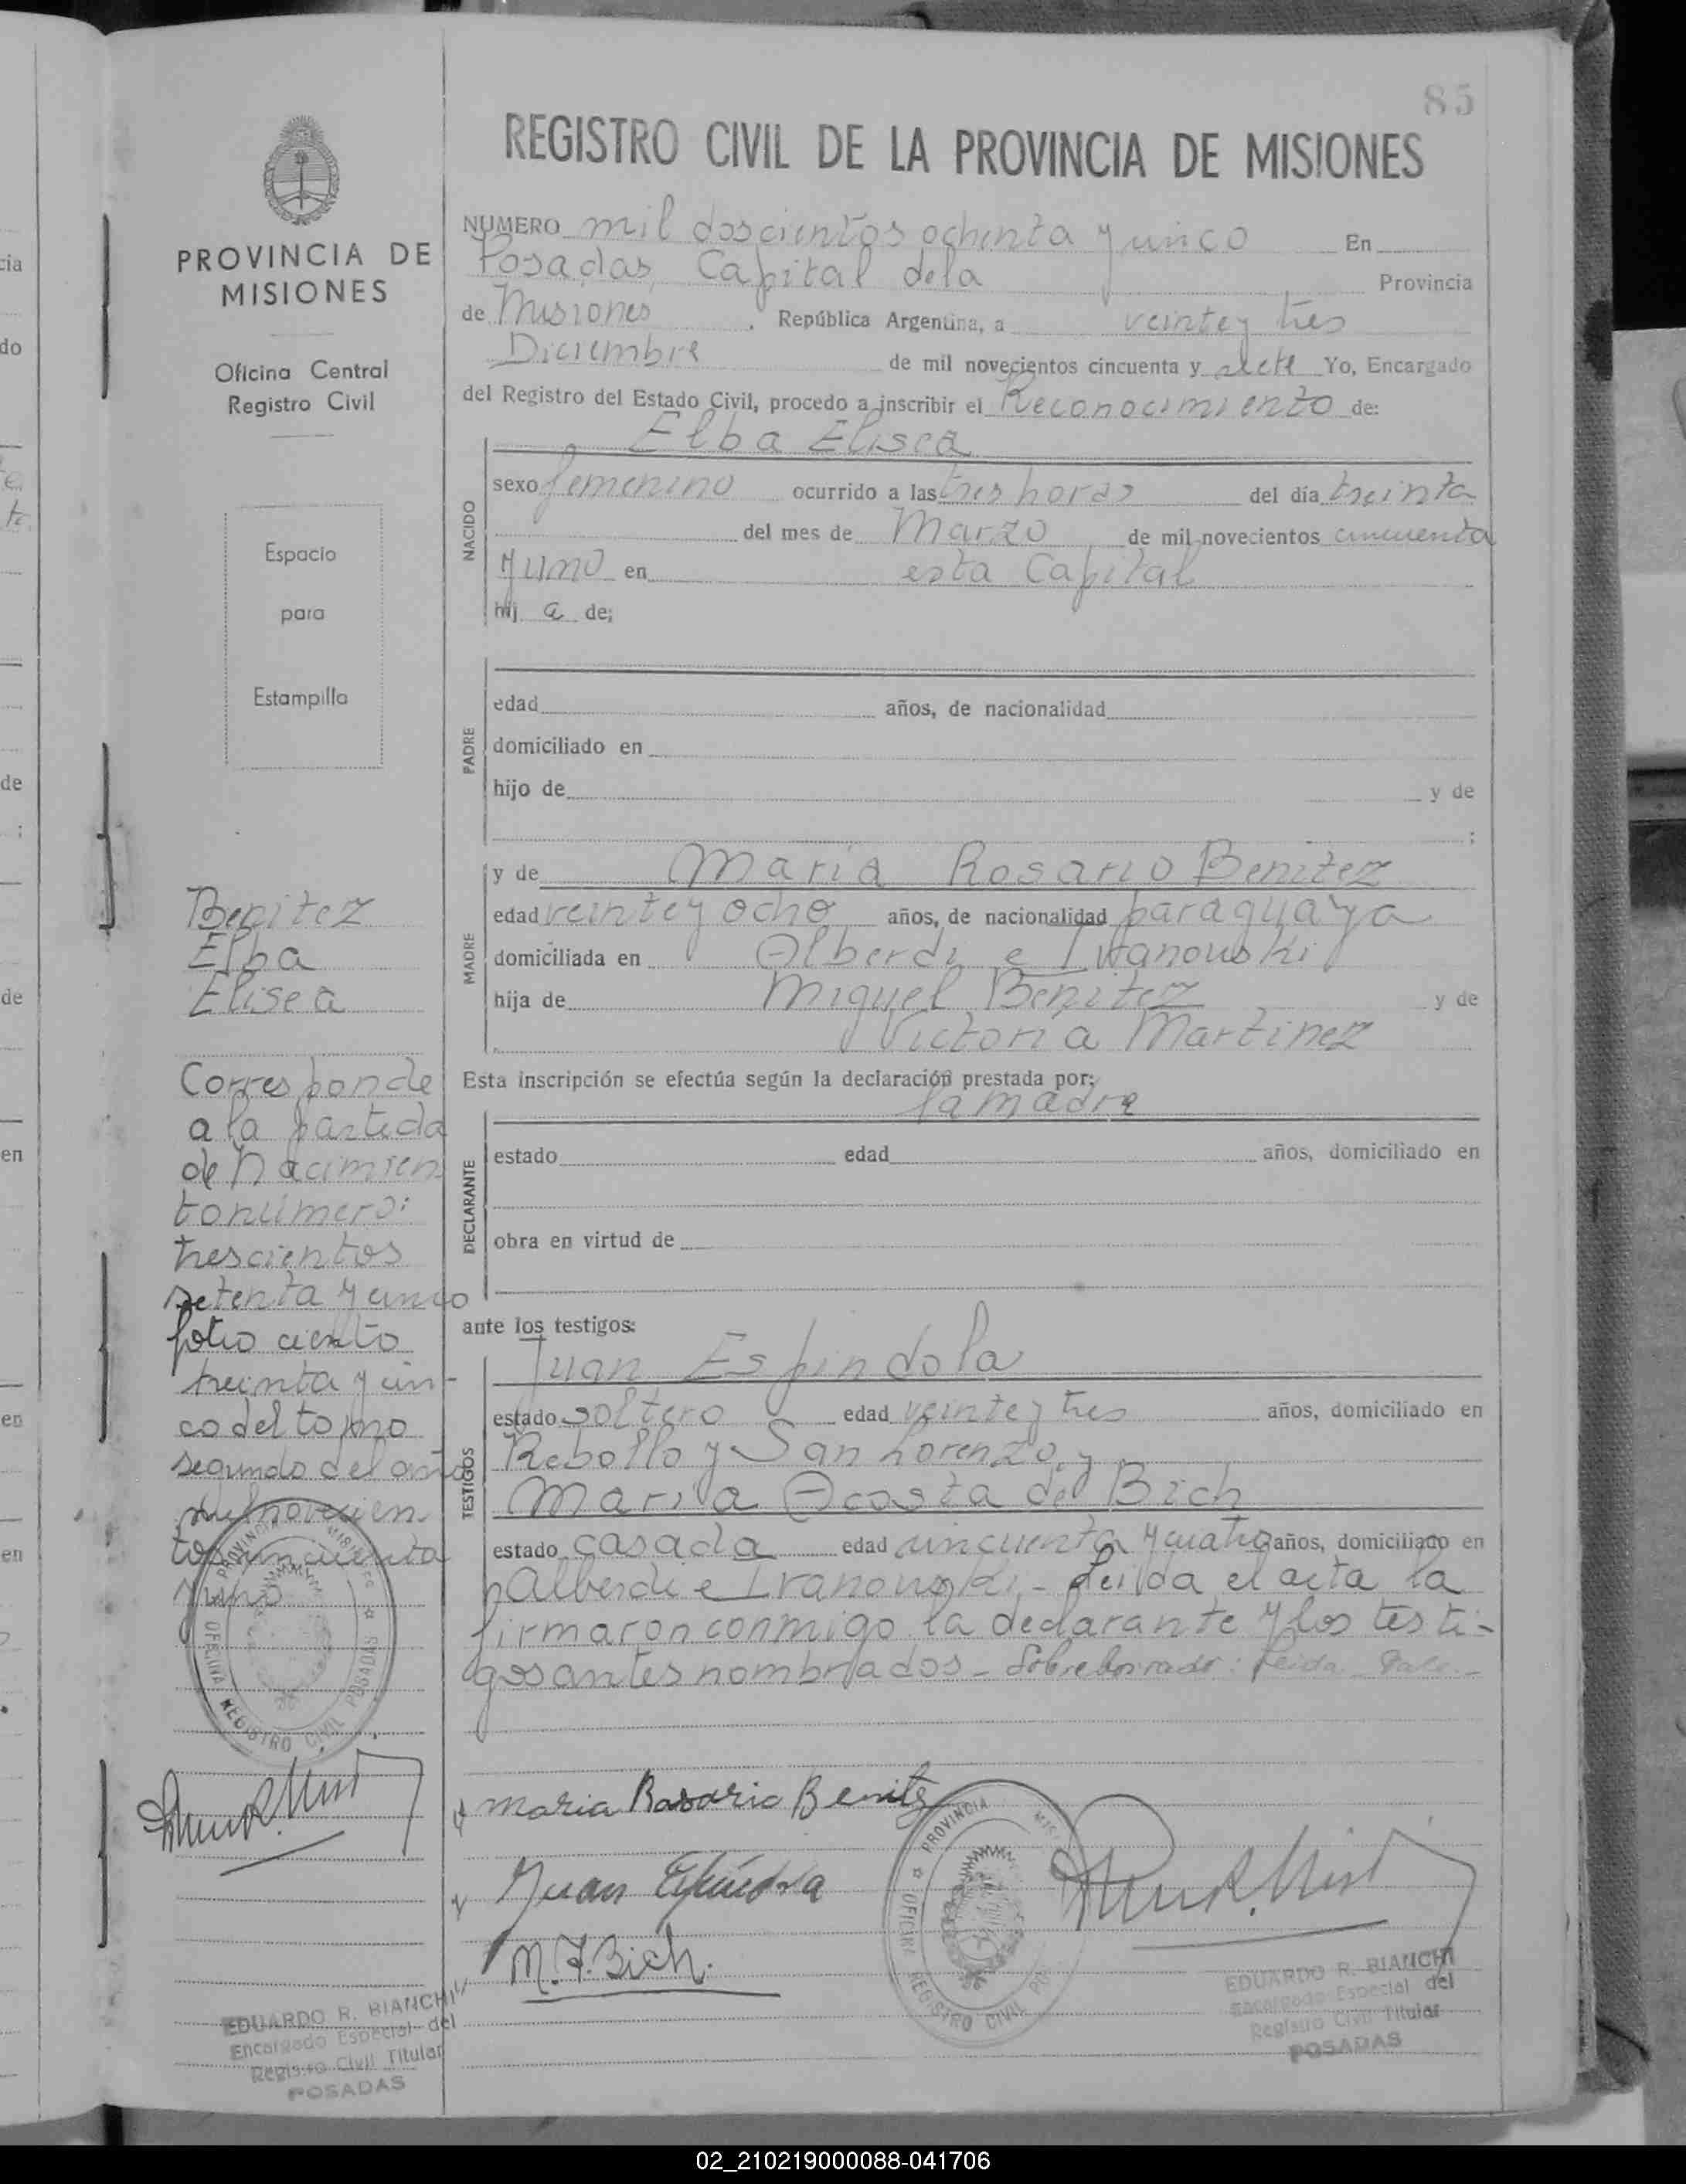 85
REGISTRO CIVIL DE LA PROVINCIA DE MISIONES
PROVINCIA DE
MISIONES
Oficina Central
Registro Civil
Espacio
para
Estampilla
Benitez
Elba
Elisea
Corresponde
a la partida
de nacimien
to número:
trescientos
setenta y cinco
folio ciento
treinta y cin-
co del tomo
segundo del año
mil novecien
tos cincuenta
y uno
PROVINCIA MISIONES
OFICINA REGISTRO CIVIL POSADAS
EDUARDO R. BIANCHI
Encargado Especial del
Registro Civil Titular
POSADAS
NUMERO mil doscientos ochenta y cinco En
Posadas, Capital de la Provincia
de Misiones, República Argentina, a veinte y tres
Diciembre de mil novecientos cincuenta y siete Yo, Encargado
del Registro del Estado Civil, procedo a inscribir el Reconocimiento de:
Elba Elisea
NACIDO
sexo femenino ocurrido a las tres horas del día treinta
del mes de Marzo de mil novecientos cincuenta
y uno en esta Capital
hij a de;
PADRE
edad años, de nacionalidad
domiciliado en
hijo de y de
;
MADRE
y de Maria Rosario Benitez
edad veinte y ocho años, de nacionalidad paraguaya
domiciliada en Alberdi e Ivanouski
hija de Miguel Benitez y de
Victoria Martinez
Esta inscripción se efectúa según la declaración prestada por:
la madre
DECLARANTE
estado edad años, domiciliado en
obra en virtud de
ante los testigos:
TESTIGOS
Juan Espindola
estado soltero edad veinte y tres años, domiciliado en
Rebollo y San Lorenzo, y
Maria Acosta de Bich
estado casada edad cincuenta y cuatro años, domiciliado en
Alberdi e Ivanouski - Leída el acta la
firmaron conmigo la declarante y los testi-
gos antes nombrados - Sobreborrado: Leida Vale -
Maria Rosario Benitez
Juan Espíndola
M. F. Bich.
PROVINCIA MISIONES
OFICINA REGISTRO CIVIL POSADAS
EDUARDO R. BIANCHI
Encargado Especial del
Registro Civil Titular
POSADAS
02_210219000088-041706